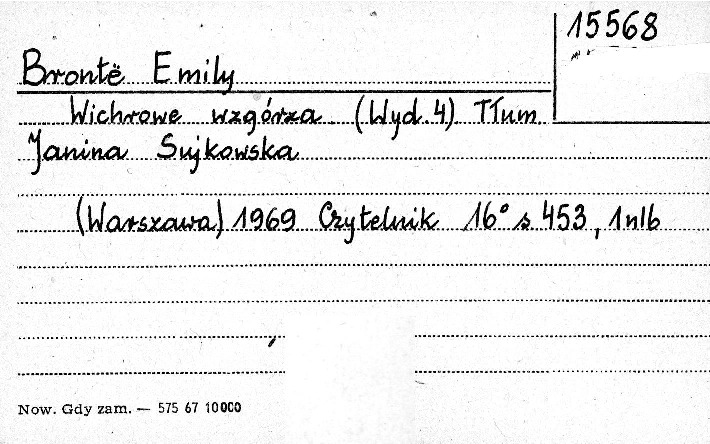 15568
Brontë Emily
Wichrowe wzgórza (Wyd. 4) Tłum
Janina Sujkowska
(Warszawa) 1969 Czytelnik 16° s 453, 1 nlb
Now. Gdy zam. — 575 67 10000